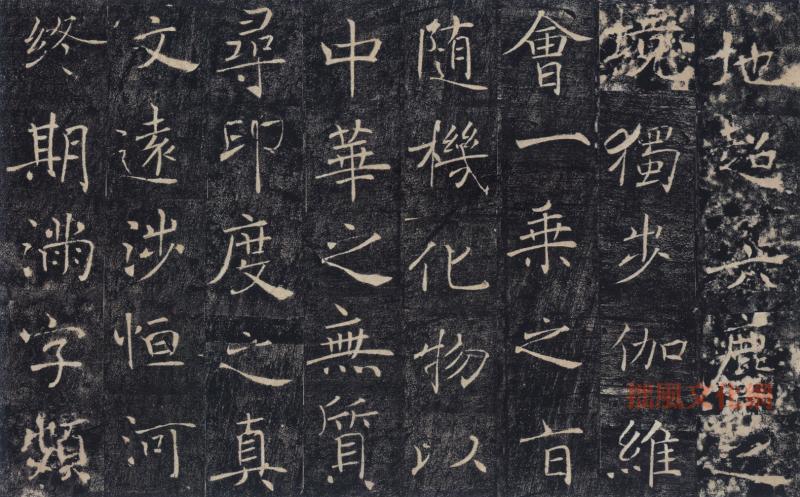 地超六塵之
境獨步伽維
會一乘之旨
随機化物以
中華之無質
尋印度之真
文遠涉恒河
終期滿字頻
風文化網